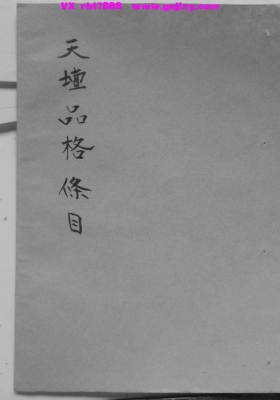 VX rbt7688 www.gujixy.com
天壇品格條目